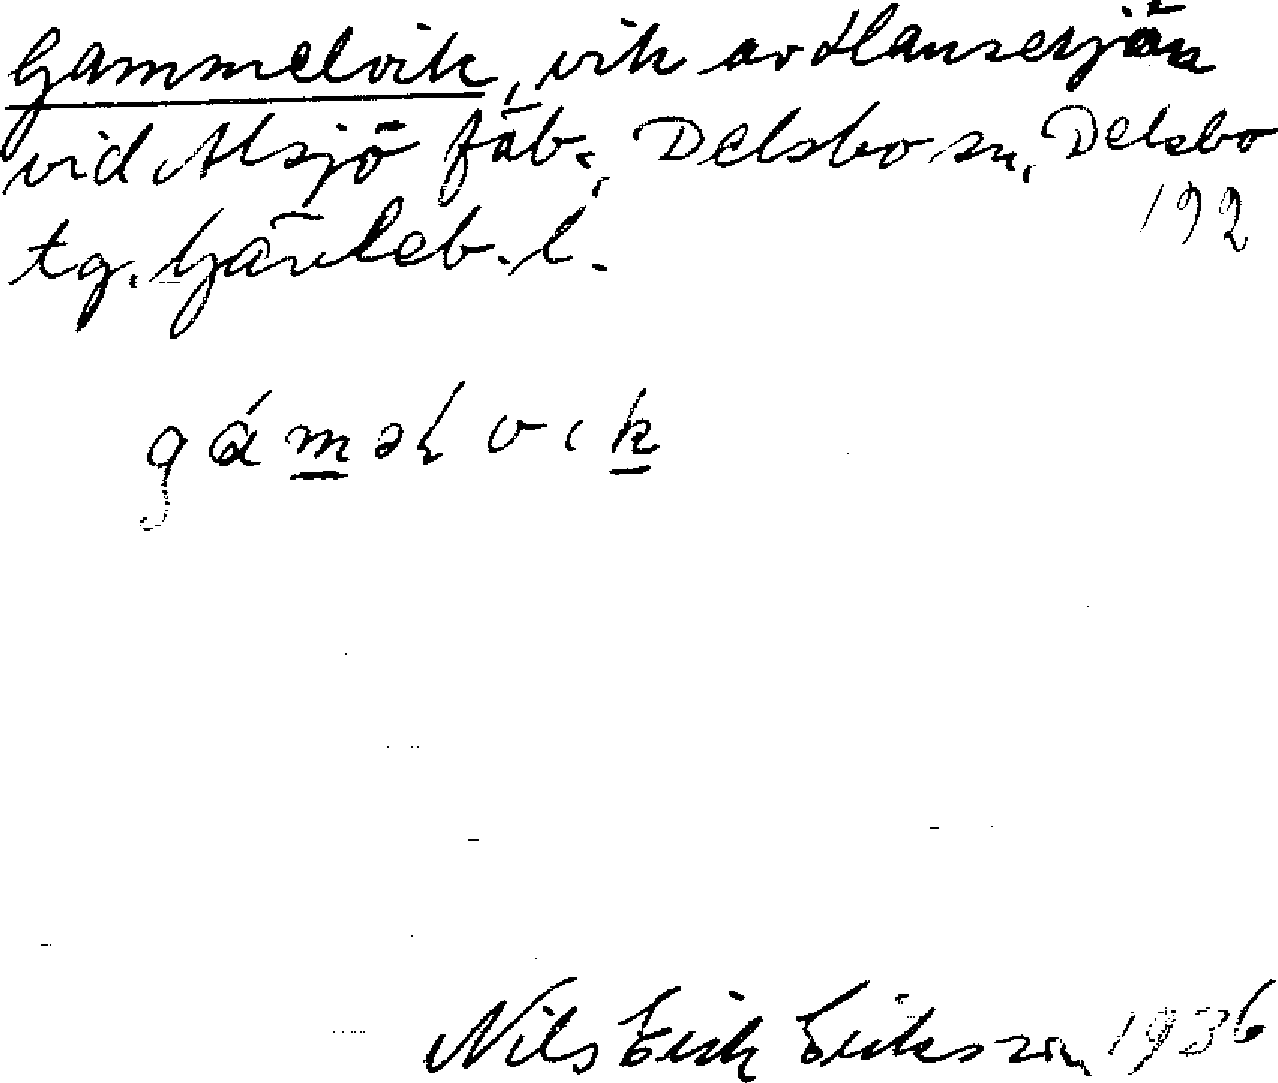 Gammelvik, vik av Hansesjön
vid Alsjö fäb., Delsbo sn, Delsbo
192
tg. Gävleb. l.
gámǝɫvιk
Nils Erik Eriksson 1936